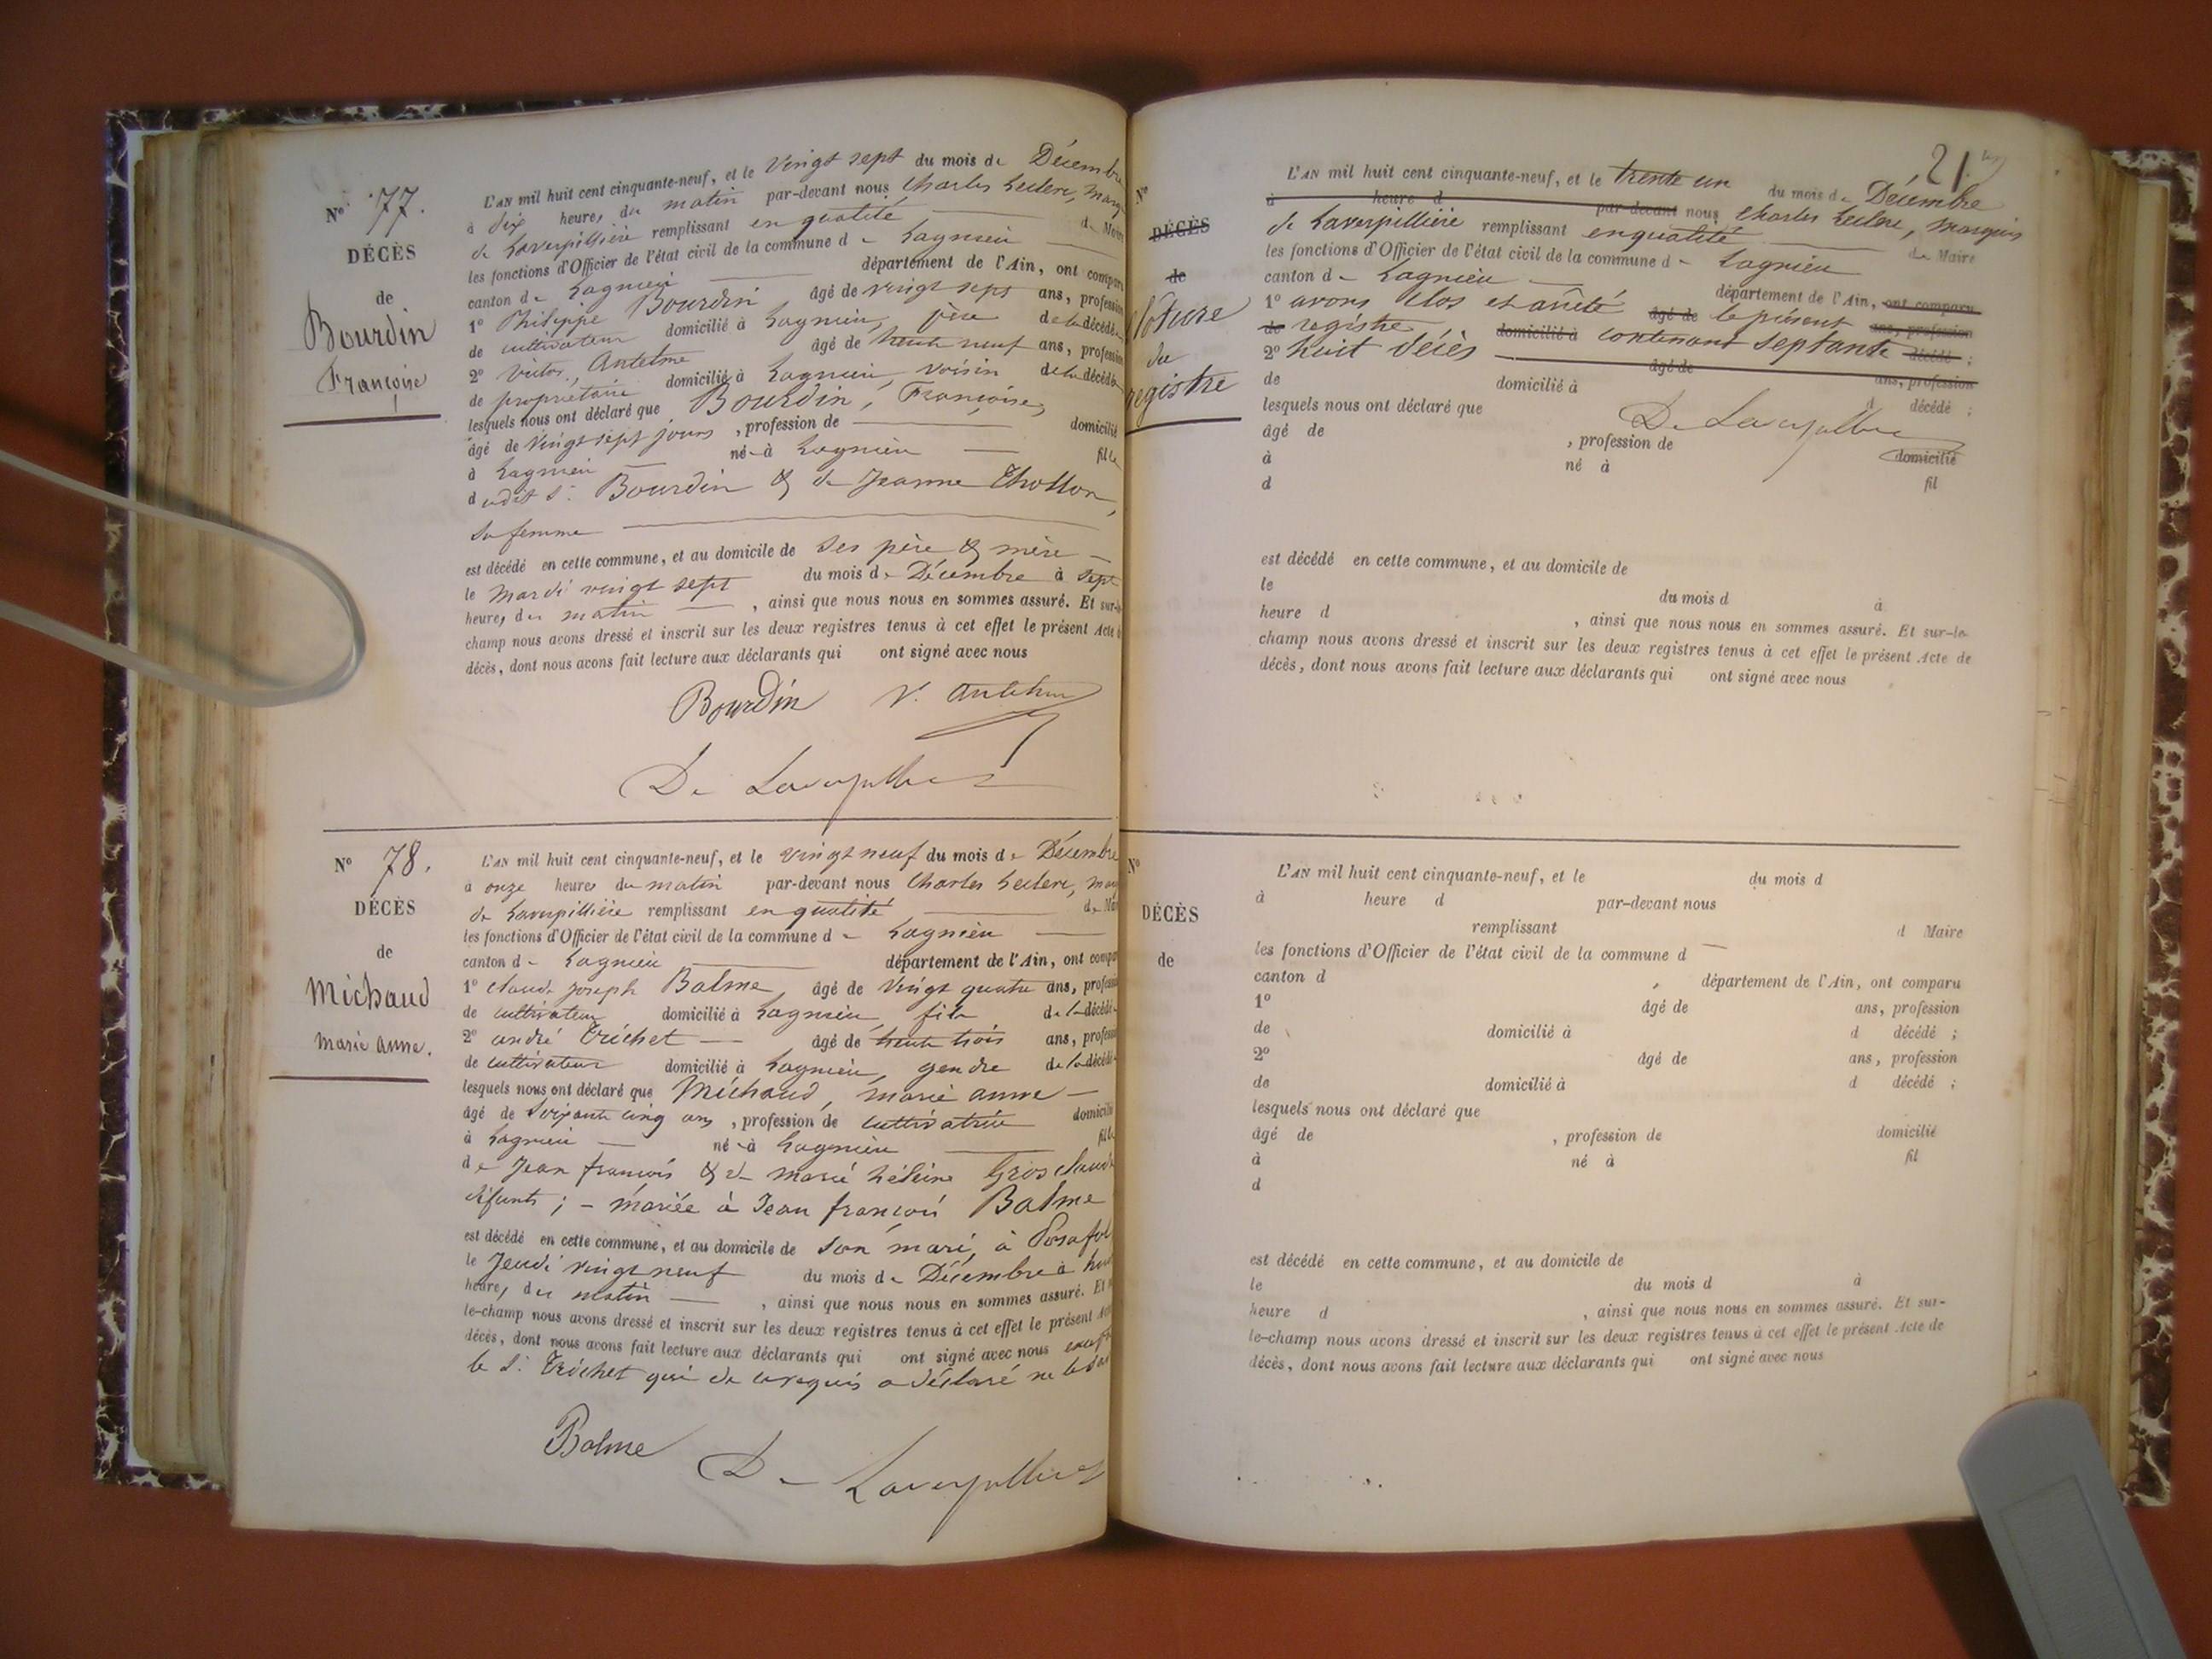 N° 77.
DÉCÈS
de
Bourdin
Françoise
L'AN mil huit cent cinquante-neuf, et le vingt sept du mois de Décembre
à dix heures du matin par-devant nous Charles Leclerc, marq
de Laverpillière remplissant en qualité de Maire
les fonctions d'Officier de l'état civil de la commune de Lagnieu
canton de Lagnieu département de l'Ain, ont comparu
1° Philippe Bourdin, âgé de vingt sept ans, profession
de cultivateur domicilié à Lagnieu, père de la décédée
2° Victor Antelme âgé de trente neuf ans, profession
de propriétaire domicilié à Lagnieu, voisin de la décédée
lesquels nous ont déclaré que Bourdin, Françoise,
âgé de vingt sept jours, profession de domicilié
à Lagnieu né à Lagnieu fille
dudit S. Bourdin & de Jeanne Thollon,
sa femme
est décédé en cette commune, et au domicile de ses père & mère
le mardi vingt sept du mois de Décembre à sept
heures du matin, ainsi que nous nous en sommes assuré. Et sur-le
champ nous avons dressé et inscrit sur les deux registres tenus à cet effet le présent Acte d
décès, dont nous avons fait lecture aux déclarants qui ont signé avec nous
Bourdin V. Antelme
De Laverpillière
N° 78.
DÉCÈS
de
Michaud
marie anne.
L'AN mil huit cent cinquante-neuf, et le vingt neuf du mois de Décembre
à onze heures du matin par-devant nous Charles Leclerc, mar
de Laverpillière remplissant en qualité de Mai
les fonctions d'Officier de l'état civil de la commune de Lagnieu
canton de Lagnieu département de l'Ain, ont compa
1° claude joseph Balme, âgé de vingt quatre ans, profession
de cultivateur domicilié à Lagnieu, fils de la décédée
2° andré Trichet âgé de trente trois ans, profession
de cultivateur domicilié à Lagnieu, gendre de la décédée
lesquels nous ont déclaré que Michaud, marie anne
âgé de soixante cinq ans, profession de cultivatrice domicilié
à Lagnieu né à Lagnieu fille
de Jean françois & de marie hélène Gros claude
défunts ; - mariée à Jean françois Balme
est décédé en cette commune, et au domicile de son mari, à Posafol
le Jeudi vingt neuf du mois de Décembre à hui
heures du matin, ainsi que nous nous en sommes assuré. Et
le-champ nous avons dressé et inscrit sur les deux registres tenus à cet effet le présent
décès, dont nous avons fait lecture aux déclarants qui ont signé avec nous excepté
le S. Trichet qui de ce requis a déclaré ne le
Balme De Laverpillière
21
N°
DÉCÈS
de
Clôture
du
registre
L'AN mil huit cent cinquante-neuf, et le trente un du mois de Décembre
à heure d par-devant nous Charles Leclerc, marquis
de Laverpillière remplissant en qualité de Maire
les fonctions d'Officier de l'état civil de la commune de Lagnieu
canton de Lagnieu département de l'Ain, ont comparu
1° avons clos et arrêté âgé de le présent ans, profession
de registre domicilié à contenant septante décédé ;
2° huit décès âgé de ans, profession
de domicilié à d décédé ;
lesquels nous ont déclaré que De Laverpillière
âgé de , profession de domicilié
à né à fil
d
est décédé en cette commune, et au domicile de
le du mois d à
heure d , ainsi que nous nous en sommes assuré. Et sur-le-
champ nous avons dressé et inscrit sur les deux registres tenus à cet effet le présent Acte de
décès, dont nous avons fait lecture aux déclarants qui ont signé avec nous
N°
DÉCÈS
de
L'AN mil huit cent cinquante-neuf, et le du mois d
à heure d par-devant nous
remplissant d Maire
les fonctions d'Officier de l'état civil de la commune d
canton d , département de l'Ain, ont comparu
1° âgé de ans, profession
de domicilié à d décédé ;
2° âgé de ans, profession
de domicilié à d décédé ;
lesquels nous ont déclaré que
âgé de , profession de domicilié
à né à fil
d
est décédé en cette commune, et au domicile de
le du mois d à
heure d , ainsi que nous nous en sommes assuré. Et sur-
le-champ nous avons dressé et inscrit sur les deux registres tenus à cet effet le présent Acte de
décès, dont nous avons fait lecture aux déclarants qui ont signé avec nous